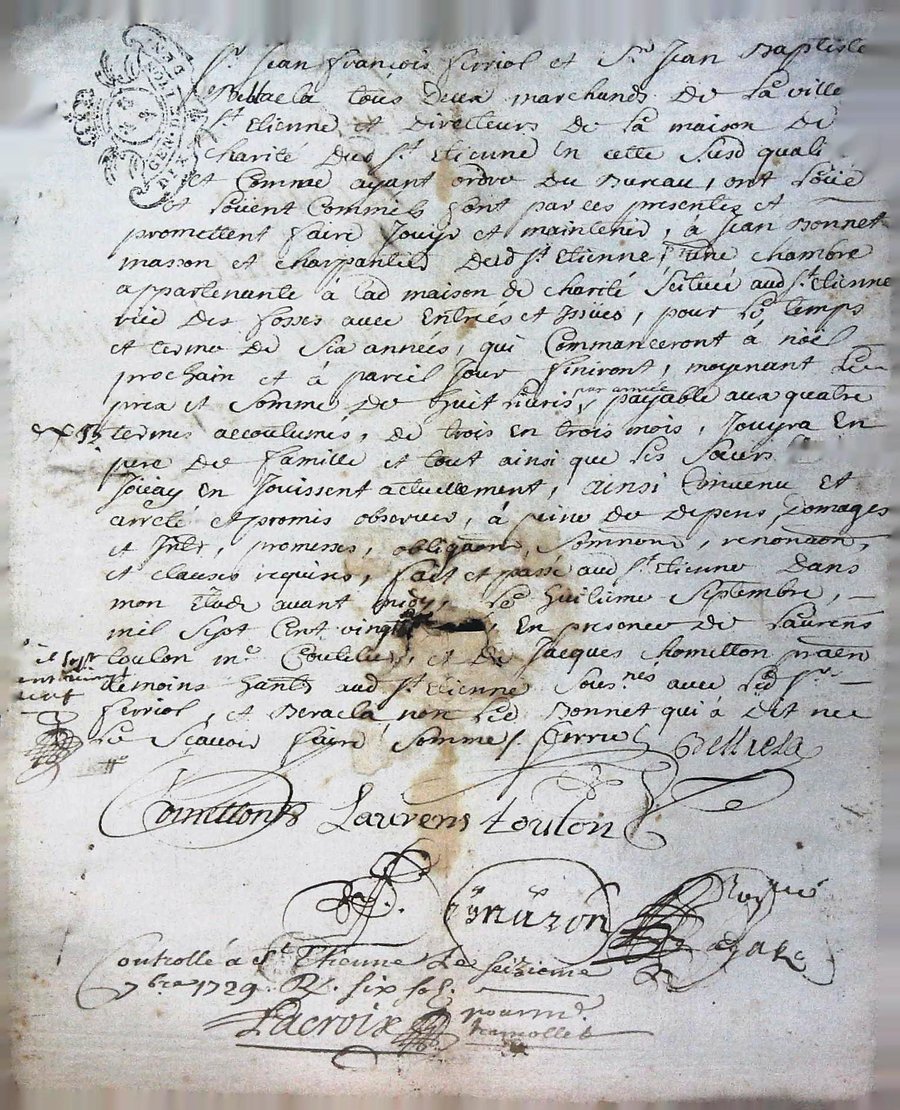 GEN. DE LION
DIX DEN
Sr. Jean François ferriol et Sr. Jean Baptiste
tous deux marchands de la ville
St Etienne et Directeurs de la maison de
charité dud St. Etienne En cette susd quali
et Comme ayant ordre du Bureau, ont Loüé
et Loüent Comme ils font par ces presentes et
promettent faire Jouyr et maintenir, à Jean Bonnet
masson et charpantier dud St. Etienne, d'une chambre
appartenante à lad maison de charité Scituée aud St. Etienne
rüe des fosses avec Entrées et Issües, pour le temps
et terme de Six années, qui Commanceront à noël
prochain et à pareil Jour finiront, moyenant le
prix et Somme de huit Livres, par année payable aux quatre
termes accoutumés, de trois En trois mois, Jouyra En
pere de famille et tout ainsi que les Sœurs
Joüay En Jouissent actuellement, ainsi Convenu Et
arreté et promis observer, à peine de depens, Domages
et Intr, promesses, obligaons, Somnons, renonaon,
et clauses requises, fait et passé aud St. Etienne Dans
mon Etude avant midy, Le huitieme Septembre,
mil Sept Cent vingt En presence de Laurens
toulon mr. Coutelier, et de Jacques chomitton praen
temoins hants aud St. Etienne Sousnés avec led Sr.
ferriol, et non led Bonnet qui à dit ne
le Sçavoir faire Somme /. ferriol
Laurens toulon
Controllé à St. Etienne Le seizieme
7bre 1729 R. six sol.
Lacroix pour mr.